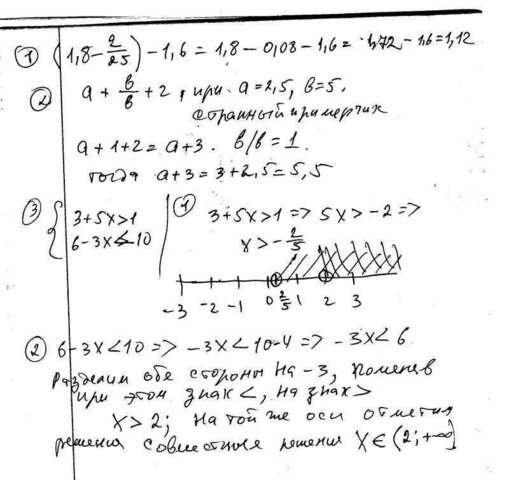 ① (1,8-2/25)-1,6 = 1,8-0,08-1,6= 1,72-1,6=1,12
② a + в/в + 2, при a=2,5, в=5.
странный примерчик
a+1+2= a+3. в/в=1.
тогда a+3=3+2,5=5,5
③ { 3+5x>1
6-3x<-10
① 3+5x>1 => 5x>-2 =>
x>-2/5
-3 -2 -1 0 2/5 1 2 3
② 6-3x<10 => -3x<10-4 => -3x<6.
Разделим обе стороны на -3, поменяв
при этом знак <, на знак >
x>2; на той же оси отметим
решения совместные решения x∈(2;+∞]